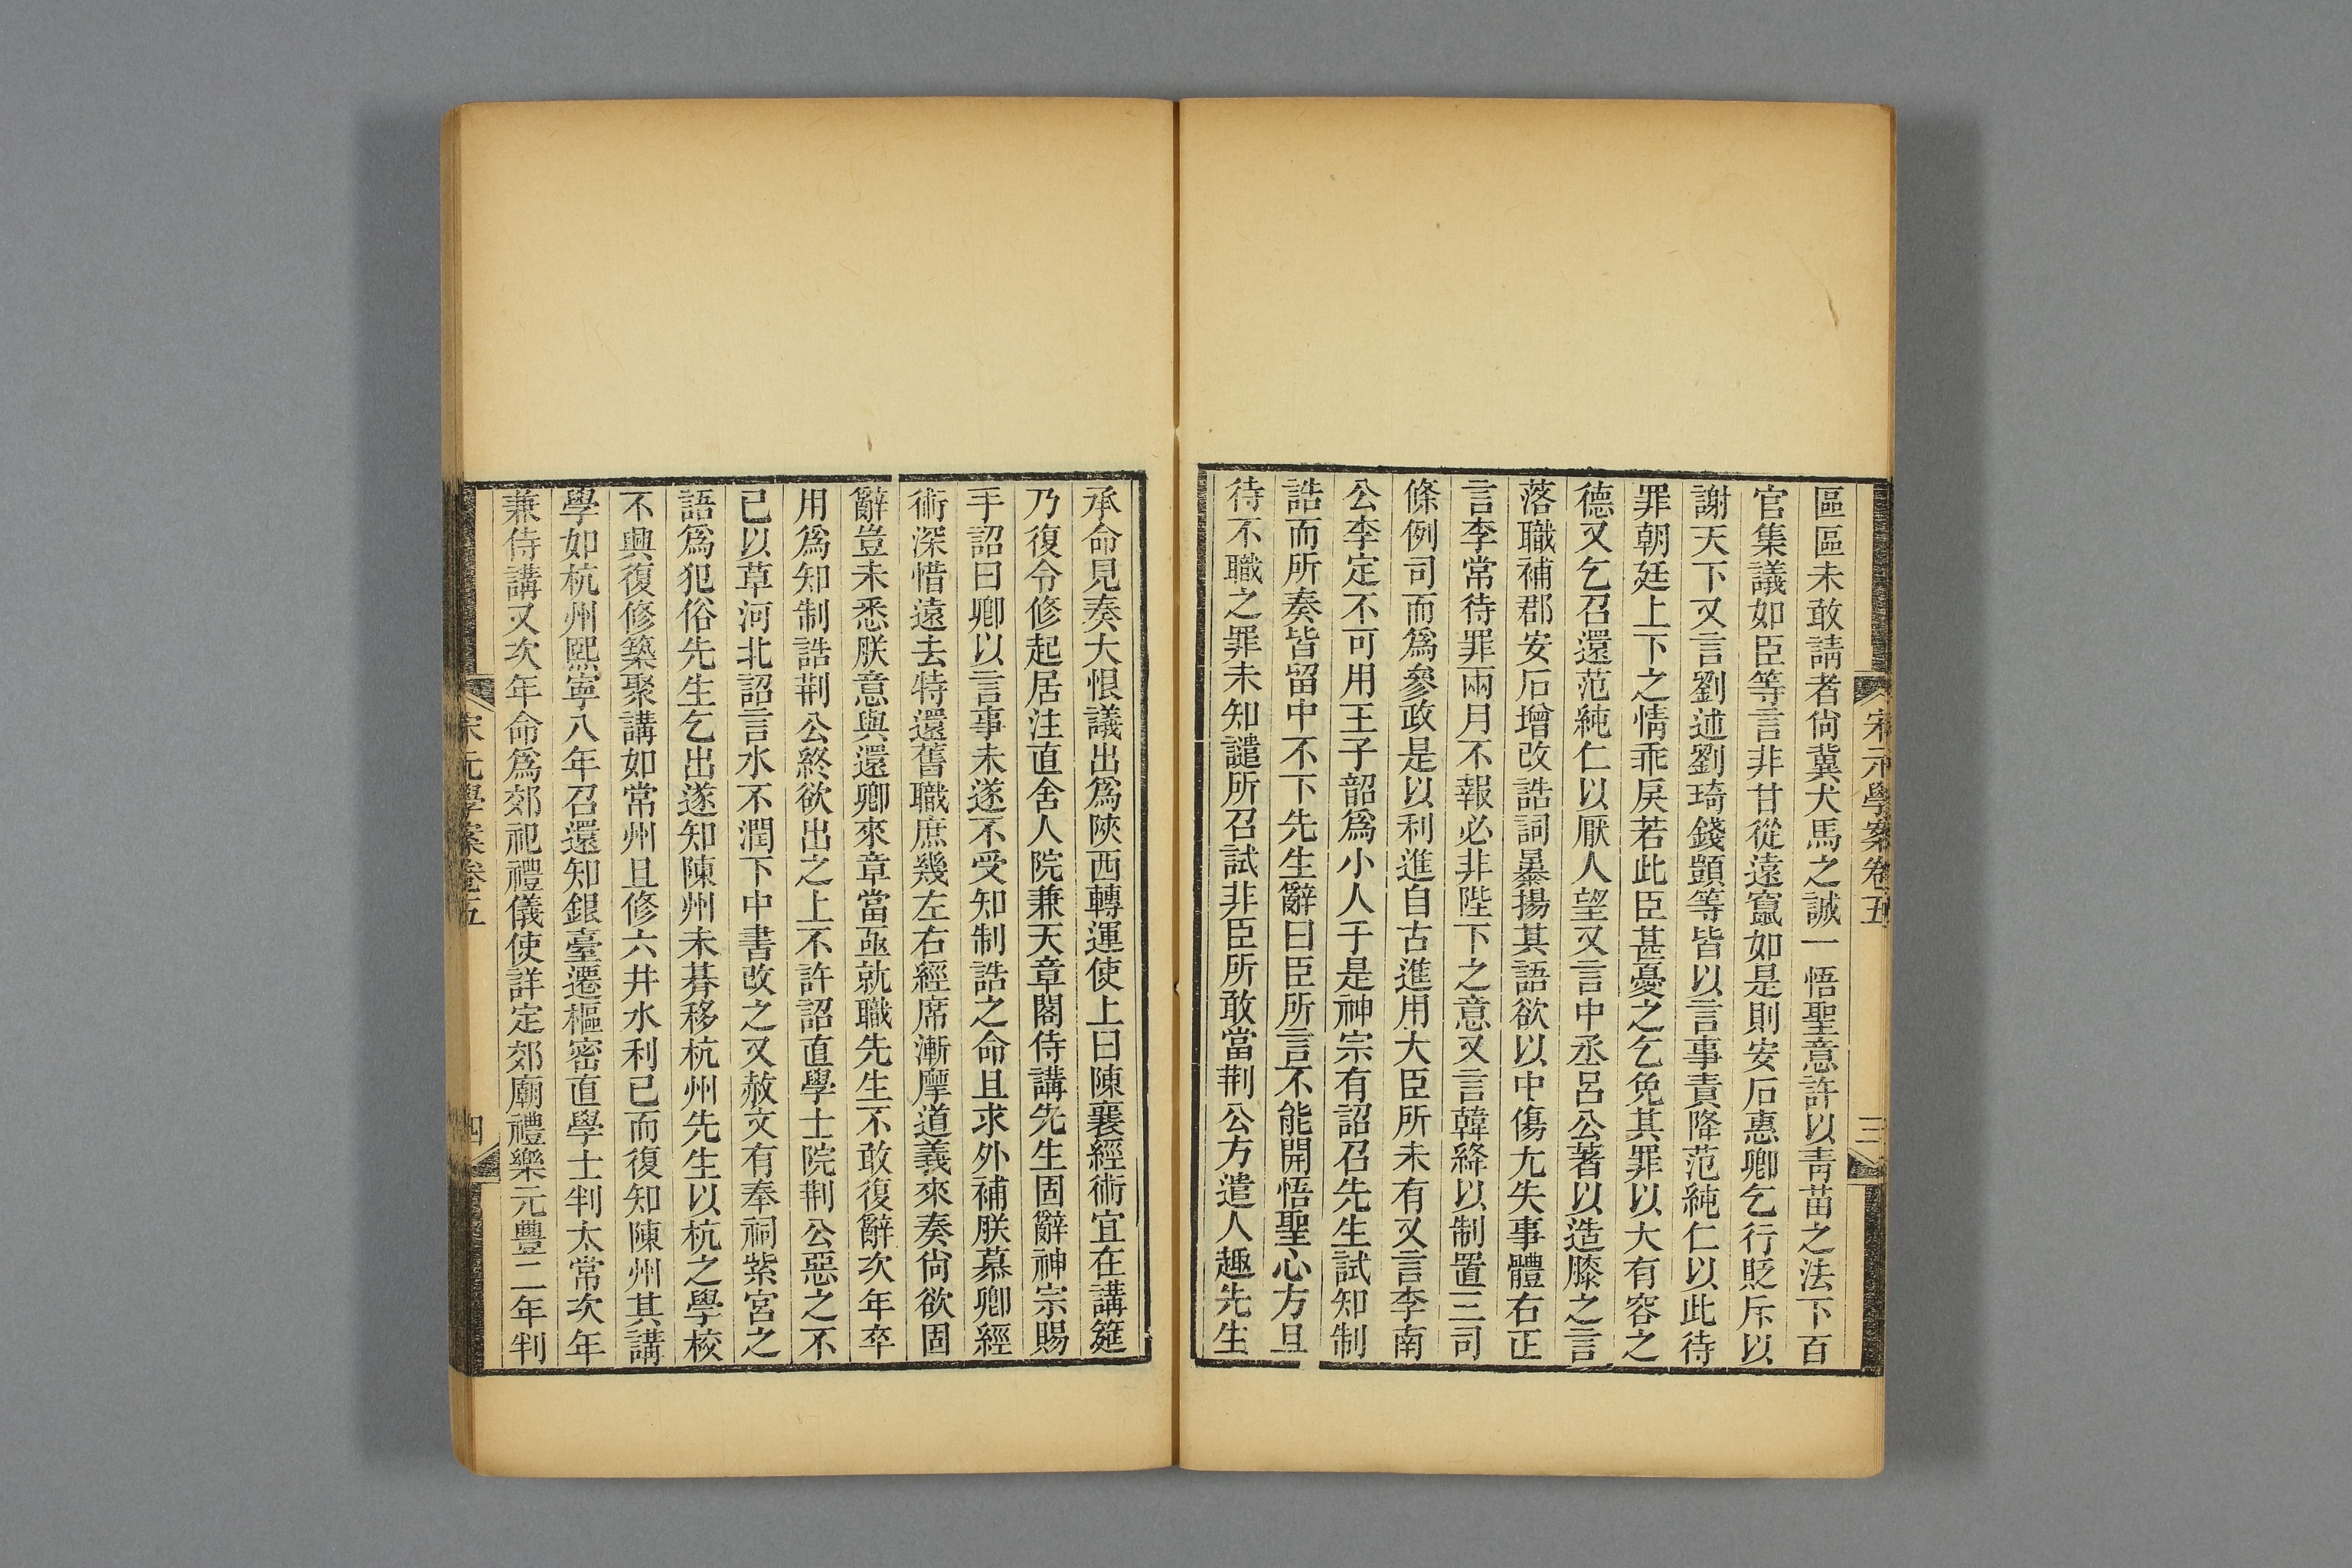 宋元學案卷五
三
區區未敢請者尙冀犬馬之誠一悟聖意許以靑苗之法下百
官集議如臣等言非甘從遠竄如是則安石惠卿乞行貶斥以
謝天下又言劉述劉琦錢顗等皆以言事責降范純仁以此待
罪朝廷上下之情乖戾若此臣甚憂之乞免其罪以大有容之
德又乞召還范純仁以厭人望又言中丞呂公著以造膝之言
落職補郡安石增改誥詞暴揚其語欲以中傷尢失事體右正
言李常待罪兩月不報必非陛下之意又言韓絳以制置三司
條例司而爲參政是以利進自古進用大臣所未有又言李南
公李定不可用王子韶爲小人于是神宗有詔召先生試知制
誥而所奏皆留中不下先生辭曰臣所言不能開悟聖心方且
待不職之罪未知譴所召試非臣所敢當荆公方遣人趣先生
承命見奏大恨議出爲陝西轉運使上曰陳襄經術宜在講筵
乃復令修起居注直舍人院兼天章閣侍講先生固辭神宗賜
手詔曰卿以言事未遂不受知制誥之命且求外補朕慕卿經
術深惜遠去特還舊職庶幾左右經席漸摩道義來奏尙欲固
辭豈未悉朕意與還卿來章當亟就職先生不敢復辭次年卒
用爲知制誥荆公終欲出之上不許詔直學士院荆公惡之不
已以草河北詔言水不潤下中書改之又赦文有奉祠紫宮之
語爲犯俗先生乞出遂知陳州未朞移杭州先生以杭之學校
不興復修築聚講如常州且修六井水利已而復知陳州其講
學如杭州熙寧八年召還知銀臺遷樞密直學士判太常次年
兼侍講又次年命爲郊祀禮儀使詳定郊廟禮樂元豐二年判
宋元學案卷五
四